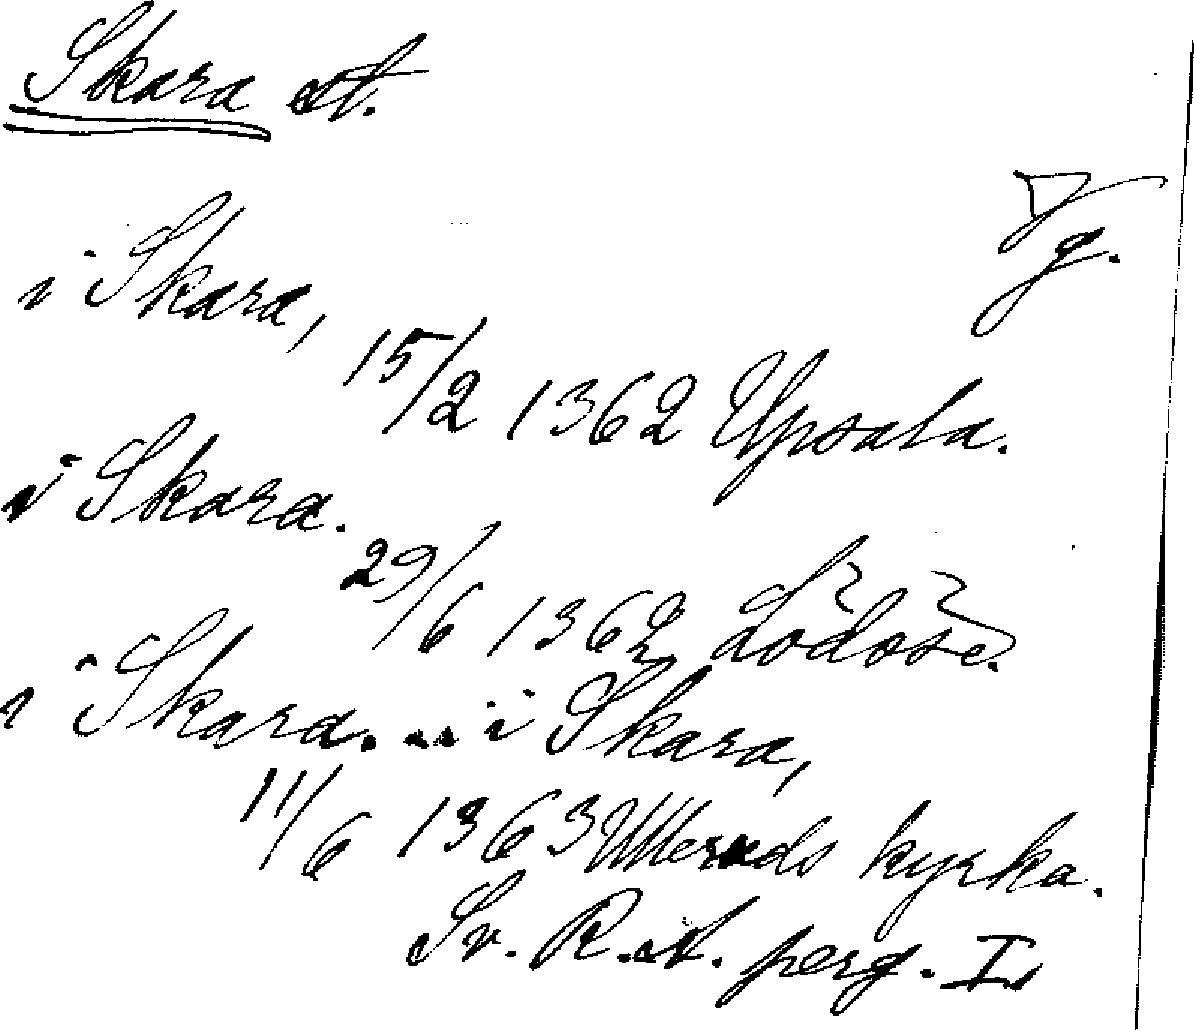 Skara st.
Vg.
i Skara,
15/2 1362 Upsala.
i Skara.
29/6 1362 Lödöse.
i Skara. ... i Skara,
11/6 1363 Ulleruds kyrka.
Sv. R.A. perg. I.